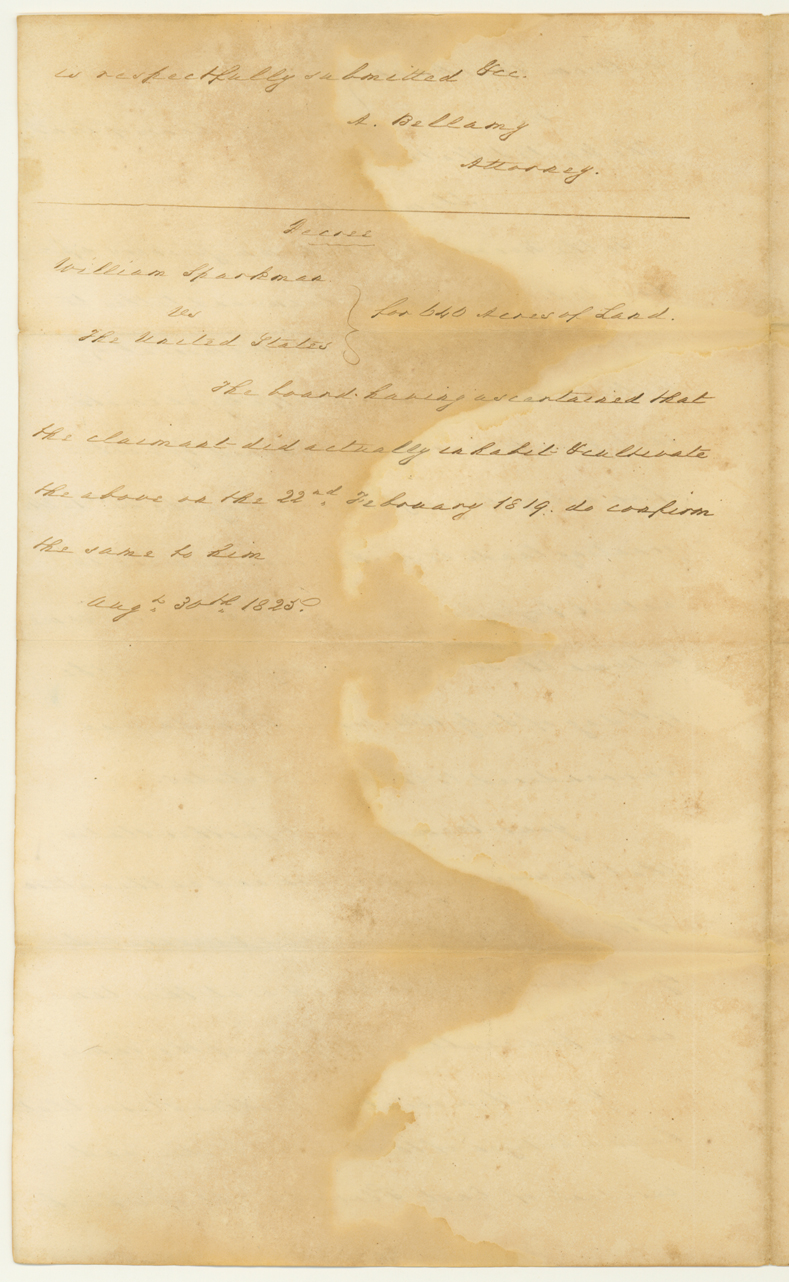 is respectfully submitted &cc.
A. Bellamy
Attorney.
Decree
William Sparkman
vs
The United States } for 640 Acres of Land.
The board having ascertained that
the claimant did actually inhabit & cultivate
the above on the 22nd February 1819. do confirm
the same to him
Augt 30th 1825.